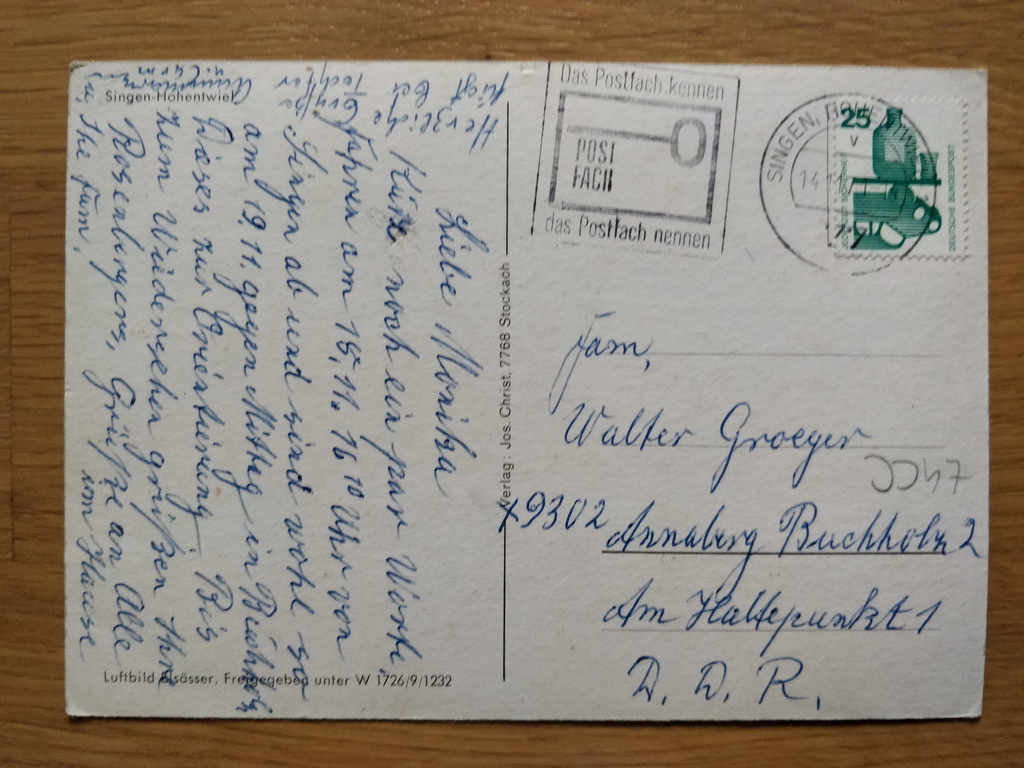 Singen-Hohentwiel
Liebe Monika
Kurz noch ein par Worte,
fahren am 15.11. 16 10 Uhr von
Singen ab und sind wohl so
am 19.11. gegen Mittg in Buchholz
Dieses zur Orientierung Bis
zum Wiedersehen grüßen Ihre
Rosenbergers, Grüße an Alle
u. Ihr Fam. im Hause
Herzliche
Grüße
Tochter
Luftbild Elsässer. Freigegeben unter W 1726/9/1232
Verlag: Jos. Christ, 7768 Stockach
Das Postfach kennen
POST
FACH
das Postfach nennen
SINGEN, HOHENTWIEL
14
77
25
DEUTSCHE BUNDESPOST
Fam,
Walter Groeger
JJ47
x9302 Annaberg Buchholz 2
Am Haltepunkt 1
D. D. R.